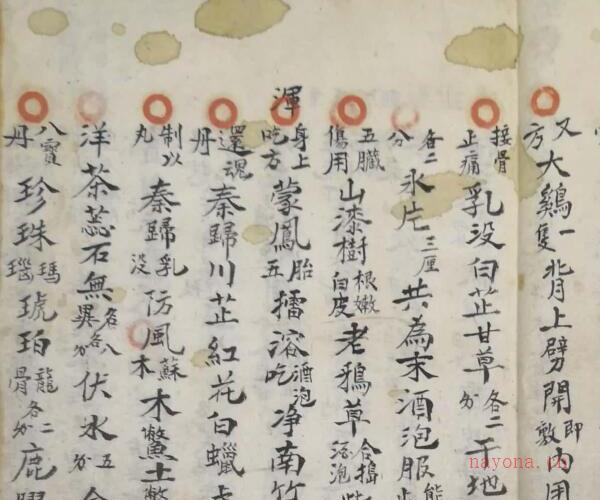 又方大鷄一隻背上劈開即敷內用
接骨止痛乳没白芷甘草各二分干地
各二分氷片三厘共為末酒泡服
五臟傷用山漆樹根嫩白皮老鴉草合搗酒泡
渾身上吃方蒙鳳胎五擂溶酒泡吃净南竹
還魂丹秦歸川芷紅花白蠟
制以丸秦歸乳没防風蘇木木鱉土鱉
洋茶蕊石無異各八分伏水五分
八寶丹珍珠瑪瑙琥珀龍骨各二分鹿
nayona.cn